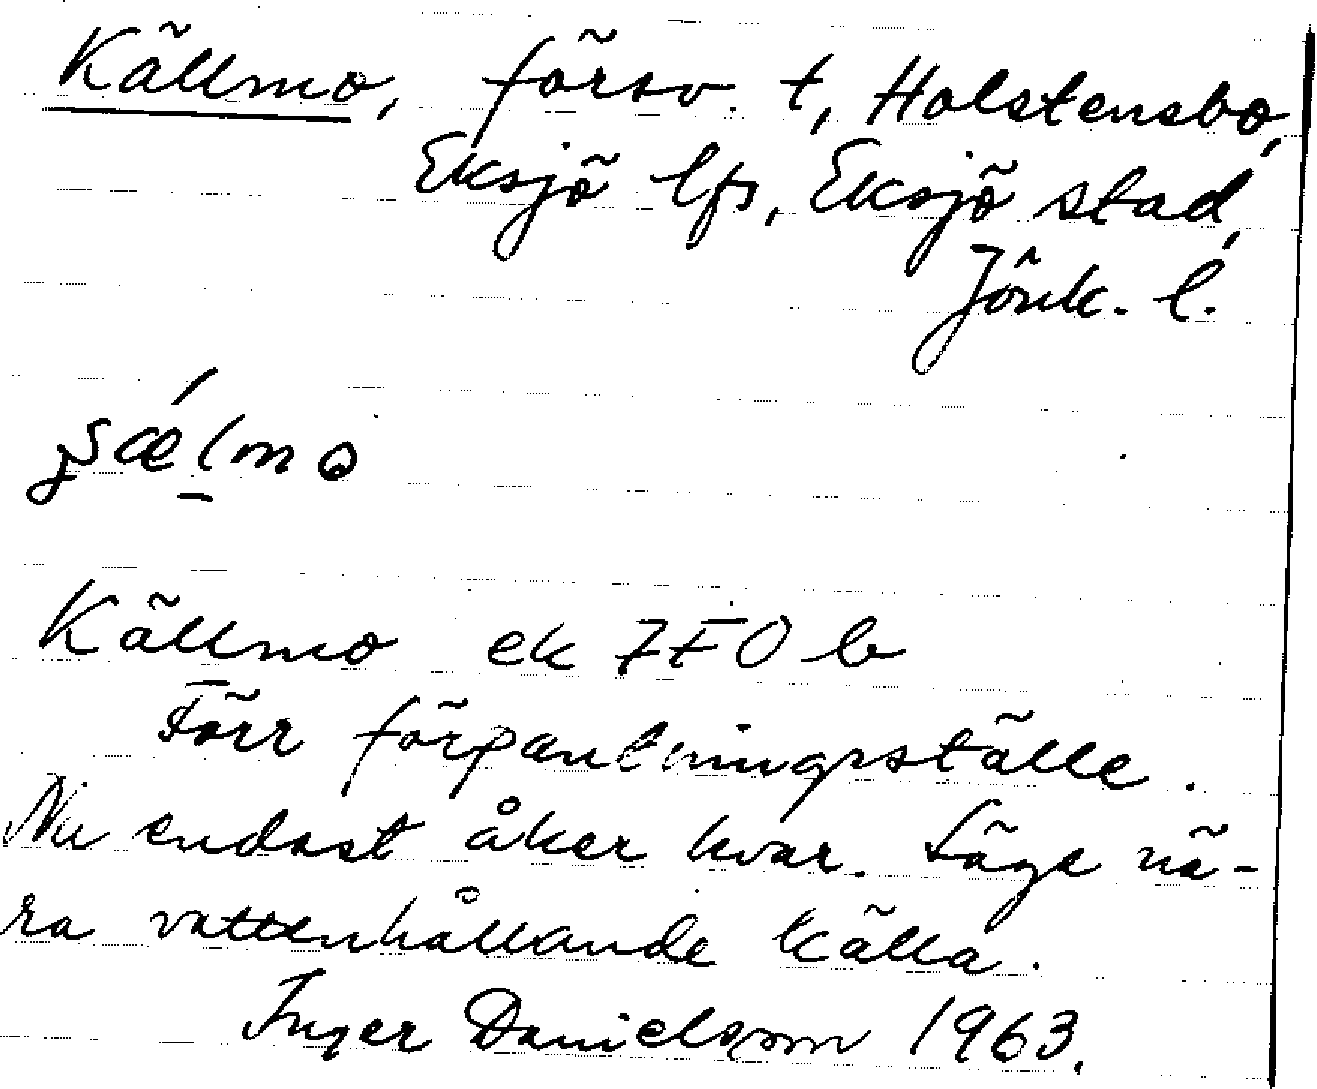 Källmo, försv. t, Holstensbo,
Eksjö lfs, Eksjö stad,
Jönk. l.
Källmo ek 7F0b
Förr förpantningsställe.
Nu endast åker kvar. Läge nä-
ra vattenhållande källa.
Inger Danielsson 1963.